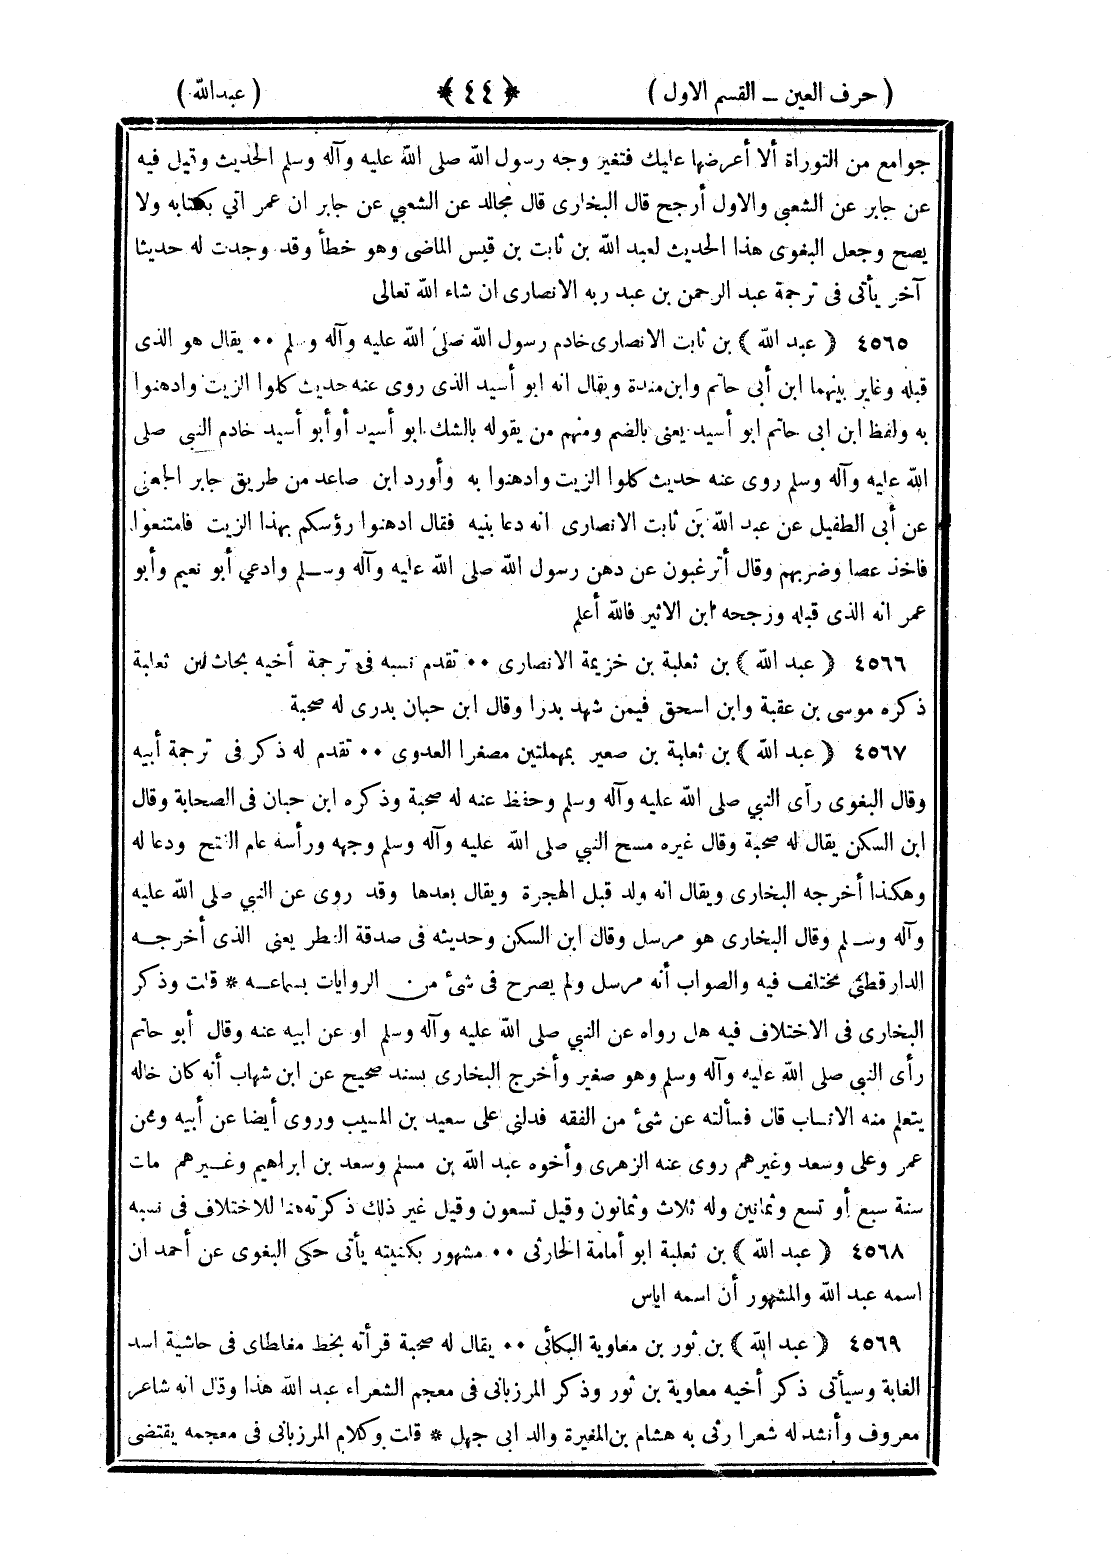 ( حرف العين ــ القسم الاول ) ﴿ ٤٤ ﴾ ( عبدالله )
جوامع من التوراة ألا أعرضها عليك فتغير وجه رسول الله صلى الله عليه وآله وسلم الحديث وقيل فيه
عن جابر عن الشعبى والاول أرجح قال البخارى قال مجالد عن الشعبي عن جابر ان عمر اتي بكتابه ولا
يصح وجعل البغوى هذا الحديث لعبد الله بن ثابت بن قيس الماضى وهو خطأ وقد وجدت له حديثا
آخر يأتى فى ترجمة عبد الرحمن بن عبد ربه الانصارى ان شاء الله تعالى
٤٥٦٥ ( عبد الله ) بن ثابت الانصارى خادم رسول الله صلى الله عليه وآله وسلم ٠٠ يقال هو الذى
قبله وغاير بينهما ابن أبى حاتم وابن مندة ويقال انه ابو أسيد الذى روى عنه حديث كلوا الزيت وادهنوا
به ولفظ ابن ابى حاتم ابو أسيد يعنى بالضم ومنهم من يقوله بالشك ابو أسيد أو أبو أسيد خادم النبى صلى
الله عليه وآله وسلم روى عنه حديث كلوا الزيت وادهنوا به وأورد ابن صاعد من طريق جابر الجعفى
عن أبى الطفيل عن عبد الله بن ثابت الانصارى انه دعا بنيه فقال ادهنوا رؤسكم بهذا الزيت فامتنعوا
فاخذ عصا وضربهم وقال أترغبون عن دهن رسول الله صلى الله عليه وآله وسلم وادعي أبو نعيم وأبو
عمر انه الذى قبله ورجحه ابن الاثير فالله أعلم
٤٥٦٦ ( عبد الله ) بن ثعلبة بن خزيمة الانصارى ٠٠ تقدم نسبه فى ترجمة أخيه بحاث بن ثعلبة
ذكره موسى بن عقبة وابن اسحق فيمن شهد بدرا وقال ابن حبان بدرى له صحبة
٤٥٦٧ ( عبد الله ) بن ثعلبة بن صعير بمهملتين مصغرا العدوى ٠٠ تقدم له ذكر فى ترجمة أبيه
وقال البغوى رأى النبي صلى الله عليه وآله وسلم وحفظ عنه له صحبة وذكره ابن حبان فى الصحابة وقال
ابن السكن يقال له صحبة وقال غيره مسح النبي صلى الله عليه وآله وسلم وجهه ورأسه عام الفتح ودعا له
وهكذا أخرجه البخارى ويقال انه ولد قبل الهجرة ويقال بعدها وقد روى عن النبي صلى الله عليه
وآله وسلم وقال البخارى هو مرسل وقال ابن السكن وحديثه فى صدقة الفطر يعنى الذى أخرجه
الدارقطنى مختلف فيه والصواب أنه مرسل ولم يصرح فى شئ من الروايات بسماعه * قلت وذكر
البخارى فى الاختلاف فيه هل رواه عن النبي صلى الله عليه وآله وسلم او عن ابيه عنه وقال أبو حاتم
رأى النبي صلى الله عليه وآله وسلم وهو صغير وأخرج البخارى بسند صحيح عن ابن شهاب أنه كان خاله
يتعلم منه الانساب قال فسألته عن شئ من الفقه فدلنى على سعيد بن المسيب وروى أيضا عن أبيه وعن
عمر وعلى وسعد وغيرهم روى عنه الزهرى وأخوه عبد الله بن مسلم وسعد بن ابراهيم وغيرهم مات
سنة سبع أو تسع وثمانين وله ثلاث وثمانون وقيل تسعون وقيل غير ذلك ذكرته هنا للاختلاف فى نسبه
٤٥٦٨ ( عبد الله ) بن ثعلبة ابو أمامة الحارثى ٠٠ مشهور بكنيته يأتى حكى البغوى عن أحمد ان
اسمه عبد الله والمشهور أن اسمه اياس
٤٥٦٩ ( عبد الله ) بن ثور بن معاوية البكائى ٠٠ يقال له صحبة قرأته بخط مغلطاى فى حاشية اسد
الغابة وسيأتى ذكر أخيه معاوية بن ثور وذكر المرزبانى فى معجم الشعراء عبد الله هذا وقال انه شاعر
معروف وأنشد له شعرا رثى به هشام بن المغيرة والد ابى جهل * قلت وكلام المرزبانى فى معجمه يقتضى